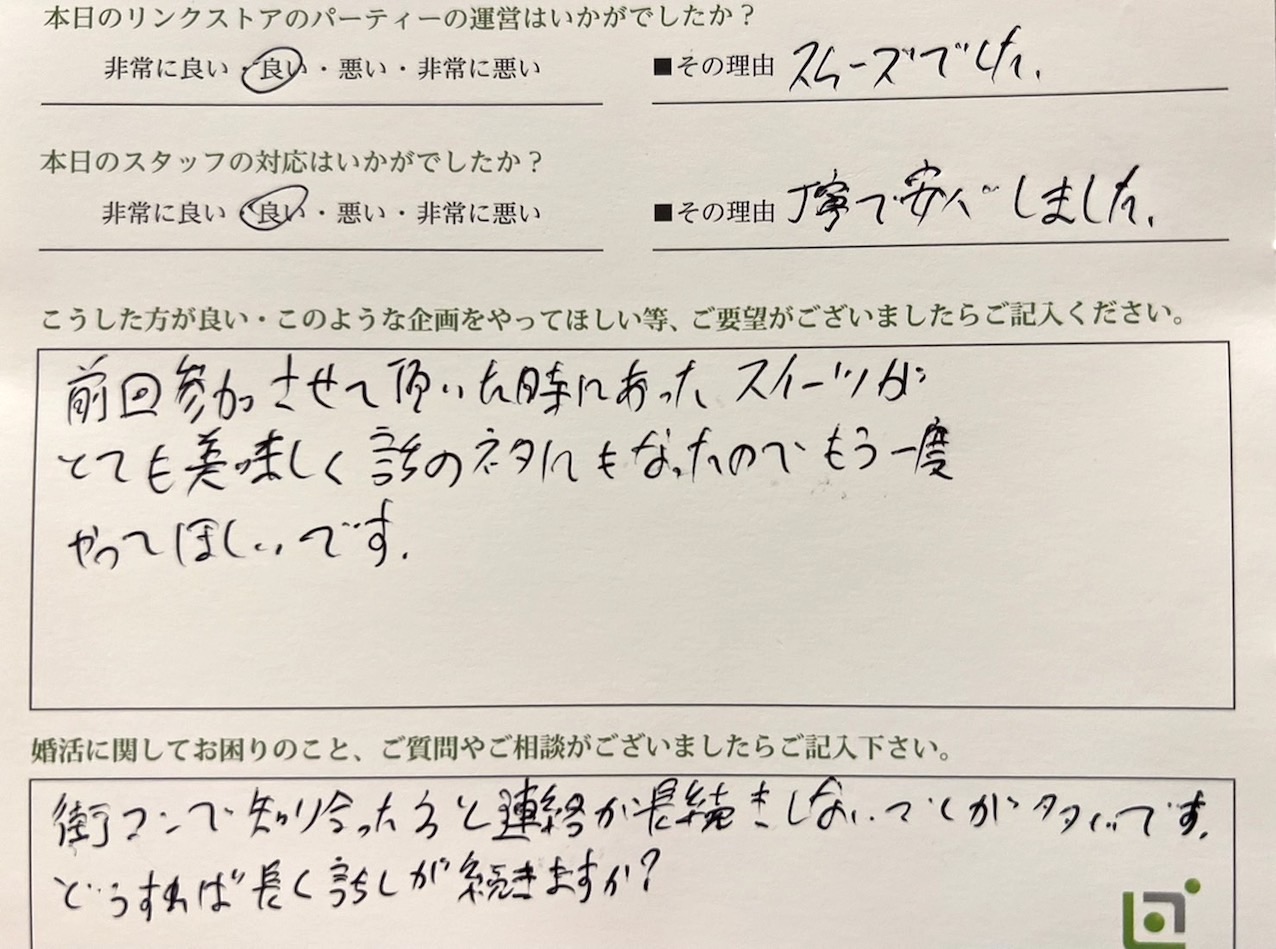 本日のリンクストアのパーティーの運営はいかがでしたか？
非常に良い・良い・悪い・非常に悪い ■その理由 スムーズでした.
本日のスタッフの対応はいかがでしたか？
非常に良い・良い・悪い・非常に悪い ■その理由 丁寧で安心しました.
こうした方が良い・このような企画をやってほしい等、ご要望がございましたらご記入ください。
前回参加させて頂いた時にあったスイーツが
とても美味しく話のネタにもなったので もう一度
やってほしいです.
婚活に関してお困りのこと、ご質問やご相談がございましたらご記入下さい。
街コンで知り合った方と連絡が長続きしないことが多いです.
どうすれば長く話しが続きますか？